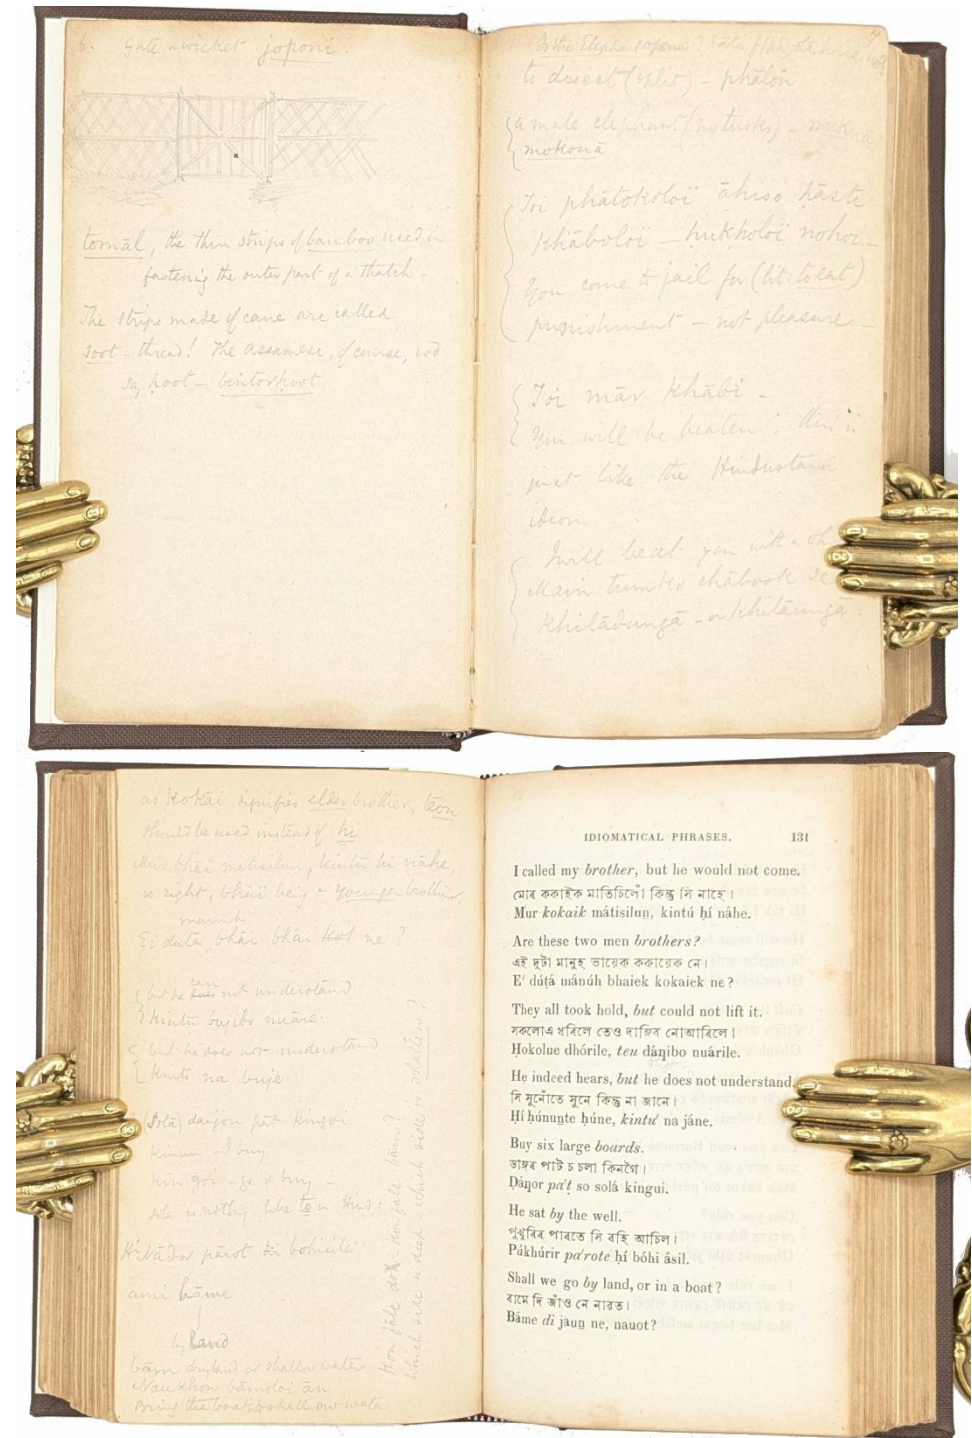 6. Gate or wicket joponi.
tomāl, the thin strips of bamboo used in
fastening the outer part of a thatch.
The strips made of cane are called
soot - thread! The Assamese, of course,
say hoot - bentorhoot
7
to disect (split) - phālon
{a male elephant (no tusks) -
mokonā
Toi phātokoloï āhiso hāsti
khāboloï - hukholoï nohoi -
You come to jail for (lit: to eat)
punushment - not pleasure -
Toi mār khābi -
You will be beaten : this is
just like the Hindustani
idiom
I will beat you with a
Main tumko chābook se
khilādungā - or khilāungā.
as Kokai signifies elder brother, teon
should be used instead of hi
Mur bhāi matisilun, kintu hi nāhe,
is right, bhāi being a younger brother
manuh
Ei duta bhāi bhāi ne ?
can
but he does not understand
kintu bujibo nuāre.
but he does not understand
kintu na buje
(solā) dangor pāt kingoi
kinun - I buy
kin goi - go & buy -
sole is nothing like te in Hind:
pārot hi bohisile
ami bāme
by land
dry land or shallow water
Nau khon bāmoloi ān
Bring the boat shallow water
which side is deep - which side is shallow ?
IDIOMATICAL PHRASES. 131
I called my brother, but he would not come.
মোৰ ককাইক মাতিচিলোঁ কিন্তু সি নাহে।
Mur kokaik mátisiluṉ, kintú ḥí náhe.
Are these two men brothers?
এই দুটা মানুহ ভায়েক ককায়েক নে।
E' dúṭá mánúh bhaiek kokaiek ne?
They all took hold, but could not lift it.
সকলোএ ধৰিলে তেও দাঙ্গিব নোআৰিলে।
Ḥokolue dhórile, teu dáṉibo nuárile.
He indeed hears, but he does not understand.
সি সুনোঁতে সুনে কিন্তু না জানে।
Ḥí ḥúnuṉte ḥúne, kintu' na jáne.
Buy six large boards.
ডাঙ্গৰ পাট চ চলা কিনগৈ।
Ḍáṉor pa'ṭ so solá kingui.
He sat by the well.
পুখুৰিৰ পাৰতে সি বহি আচিল।
Púkhúrir pa'rote ḥí bóhi ásil.
Shall we go by land, or in a boat?
বামে দি জাঁও নে নাৱত।
Báme di jàuṉ ne, nauot?